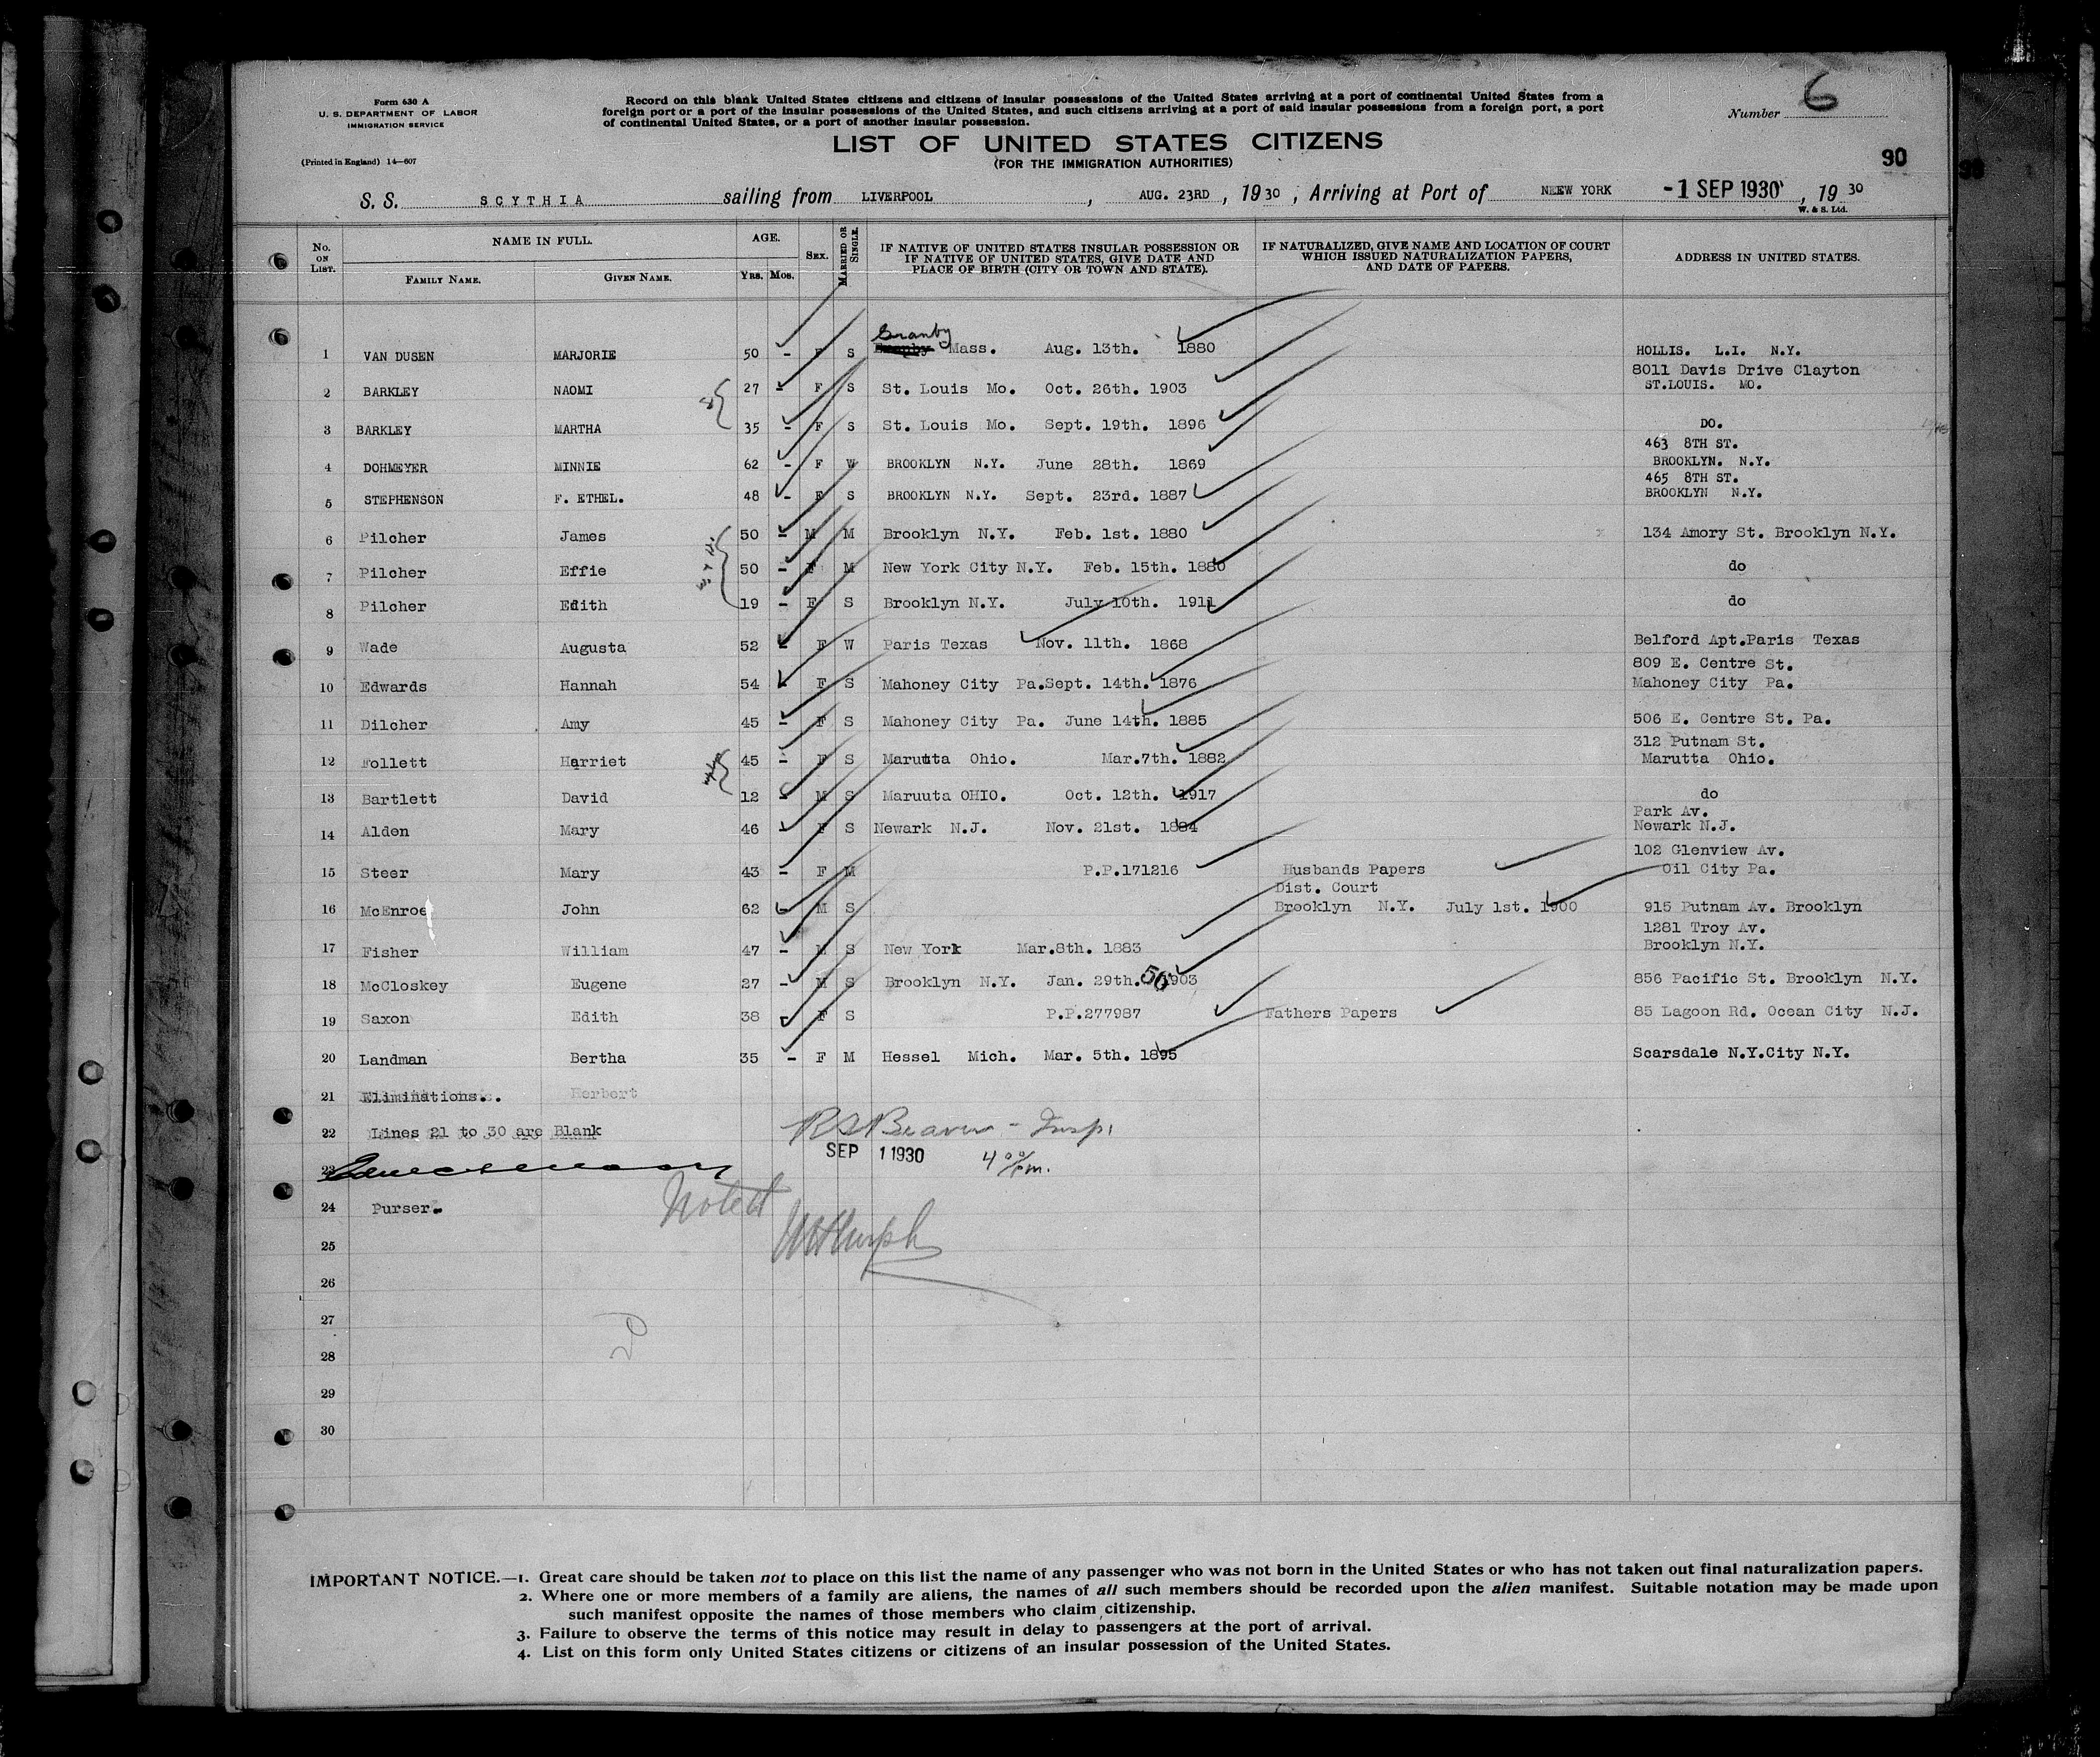 Form 630 A
U. S. DEPARTMENT OF LABOR
IMMIGRATION SERVICE
(Printed in England) 14—607
Record on this blank United States citizens and citizens of insular possessions of the United States arriving at a port of continental United States from a
foreign port or a port of the insular possessions of the United States, and such citizens arriving at a port of said insular possessions from a foreign port, a port
of continental United States, or a port of another insular possession.
Number 6
LIST OF UNITED STATES CITIZENS
(FOR THE IMMIGRATION AUTHORITIES)
90
S. S. SCYTHIA sailing from LIVERPOOL , AUG. 23RD , 19 30 , Arriving at Port of NEEW YORK -1 SEP 1930 , 19 30
W. & S. Ltd.
No. ON LIST. NAME IN FULL. FAMILY NAME. GIVEN NAME. AGE. YRS. MOS. SEX. MARRIED OR SINGLE. IF NATIVE OF UNITED STATES INSULAR POSSESSION OR IF NATIVE OF UNITED STATES, GIVE DATE AND PLACE OF BIRTH (CITY OR TOWN AND STATE). IF NATURALIZED, GIVE NAME AND LOCATION OF COURT WHICH ISSUED NATURALIZATION PAPERS, AND DATE OF PAPERS. ADDRESS IN UNITED STATES.
Granby
1 VAN DUSEN MARJORIE 50 - F S Mass. Aug. 13th. 1880 HOLLIS. L.I. N.Y.
8011 Davis Drive Clayton
2 BARKLEY NAOMI 27 - F S St. Louis Mo. Oct. 26th. 1903 ST.LOUIS. MO.
3 BARKLEY MARTHA 35 - F S St. Louis Mo. Sept. 19th. 1896 DO.
463 8TH ST.
4 DOHMEYER MINNIE 62 - F W BROOKLYN N.Y. June 28th. 1869 BROOKLYN. N.Y.
465 8TH ST.
5 STEPHENSON F. ETHEL. 48 - F S BROOKLYN N.Y. Sept. 23rd. 1887 BROOKLYN N.Y.
6 Pilcher James 50 - M M Brooklyn N.Y. Feb. 1st. 1880 134 Amory St. Brooklyn N.Y.
7 Pilcher Effie 50 - F M New York City N.Y. Feb. 15th. 1880 do
8 Pilcher Edith 19 - F S Brooklyn N.Y. July 10th. 1911 do
9 Wade Augusta 52 - F W Paris Texas Nov. 11th. 1868 Belford Apt.Paris Texas
809 E. Centre St.
10 Edwards Hannah 54 - F S Mahoney City Pa.Sept. 14th. 1876 Mahoney City Pa.
11 Dilcher Amy 45 - F S Mahoney City Pa. June 14th. 1885 506 E. Centre St. Pa.
312 Putnam St.
12 Follett Harriet 45 - F S Marutta Ohio. Mar.7th. 1882 Marutta Ohio.
13 Bartlett David 12 - M S Maruuta OHIO. Oct. 12th. 1917 do
Park Av.
14 Alden Mary 46 - F S Newark N.J. Nov. 21st. 1884 Newark N.J.
102 Glenview Av.
15 Steer Mary 43 - F M P.P.171216 Husbands Papers Oil City Pa.
Dist. Court
16 McEnroe John 62 - M S Brooklyn N.Y. July 1st. 1900 915 Putnam Av. Brooklyn
1281 Troy Av.
17 Fisher William 47 - M S New York Mar.8th. 1883 Brooklyn N.Y.
18 McCloskey Eugene 27 - M S Brooklyn N.Y. Jan. 29th. 50 1903 856 Pacific St. Brooklyn N.Y.
19 Saxon Edith 38 - F S P.P.277987 Fathers Papers 85 Lagoon Rd. Ocean City N.J.
20 Landman Bertha 35 - F M Hessel Mich. Mar. 5th. 1895 Scarsdale N.Y.City N.Y.
21 Eliminations.. Herbert
22 Lines 21 to 30 are Blank Beaver - Insp.
SEP 1 1930 4 00 pm.
23
24 Purser. Noted
25
26
27
20
28
29
30
IMPORTANT NOTICE.—1. Great care should be taken not to place on this list the name of any passenger who was not born in the United States or who has not taken out final naturalization papers.
2. Where one or more members of a family are aliens, the names of all such members should be recorded upon the alien manifest. Suitable notation may be made upon
such manifest opposite the names of those members who claim citizenship.
3. Failure to observe the terms of this notice may result in delay to passengers at the port of arrival.
4. List on this form only United States citizens or citizens of an insular possession of the United States.